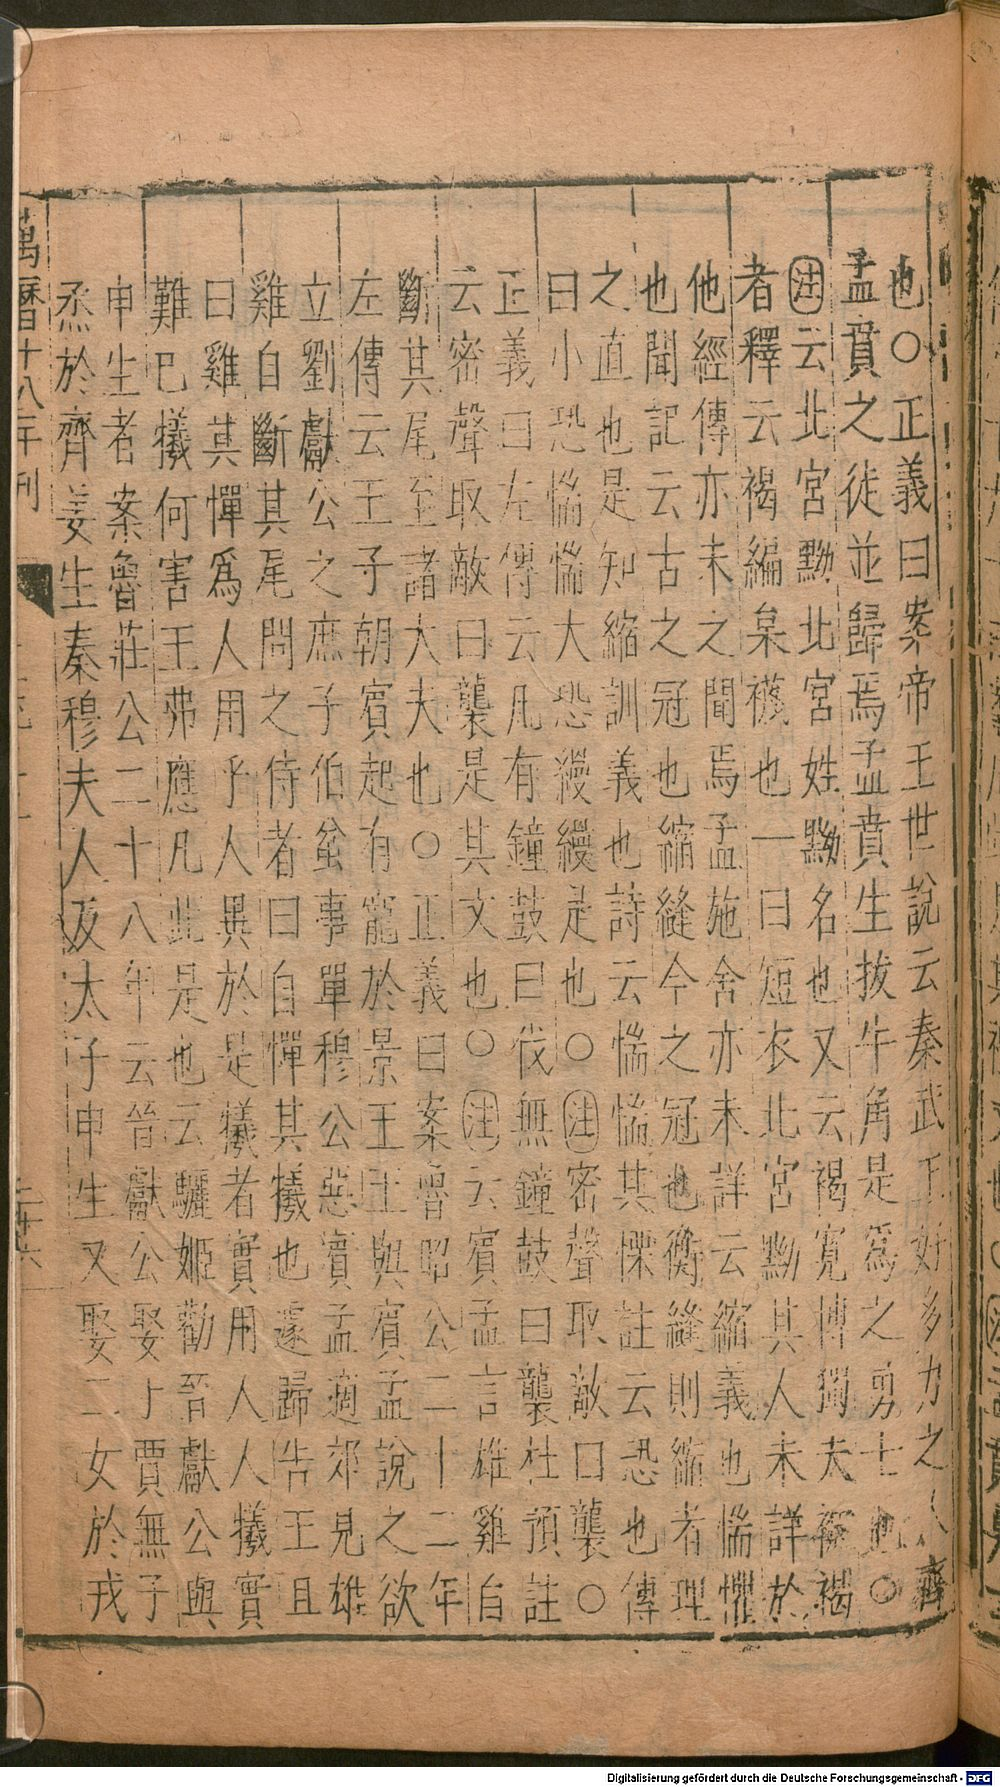 也〇正義曰案帝王世說云秦武王好多力之人齊
孟賁之徒並歸焉孟賁生拔牛角是爲之勇士也〇
注云北宮黝北宮姓黝名也又云褐寬博獨夫被褐
者釋云褐編枲襪也一曰短衣北宮黝其人未詳於
他經傳亦未之聞焉孟施舍亦未詳云縮義也惴懼
也聞記云古之冠也縮縫今之冠也衡縫則縮者理
之直也是知縮訓義也詩云惴惴其慄註云恐也傳
曰小恐惴惴大恐縵縵是也〇注密聲取敵曰襲〇
正義曰左傳云凡有鐘鼓曰伐無鐘鼓曰襲杜預註
云密聲取敵曰襲是其文也〇注云賓孟言雄雞自
斷其尾至諸大夫也〇正義曰案魯昭公二十二年
左傳云王子朝賓起有寵於景王王與賓孟說之欲
立劉獻公之庶子伯蚠事單穆公惡賓孟適郊見雄
雞自斷其尾問之侍者曰自憚其犧也遽歸告王且
曰雞其憚爲人用乎人異於是犧者實用人人犧實
難巳犧何害王弗應凡此是也云驪姬勸晉獻公與
申生者案魯莊公二十八年云晉獻公娶于賈無子
烝於齊姜生秦穆夫人及太子申生又娶二女於戎
萬曆十八年刊
二十六
Digitalisierung gefördert durch die Deutsche Forschungsgemeinschaft - DFG